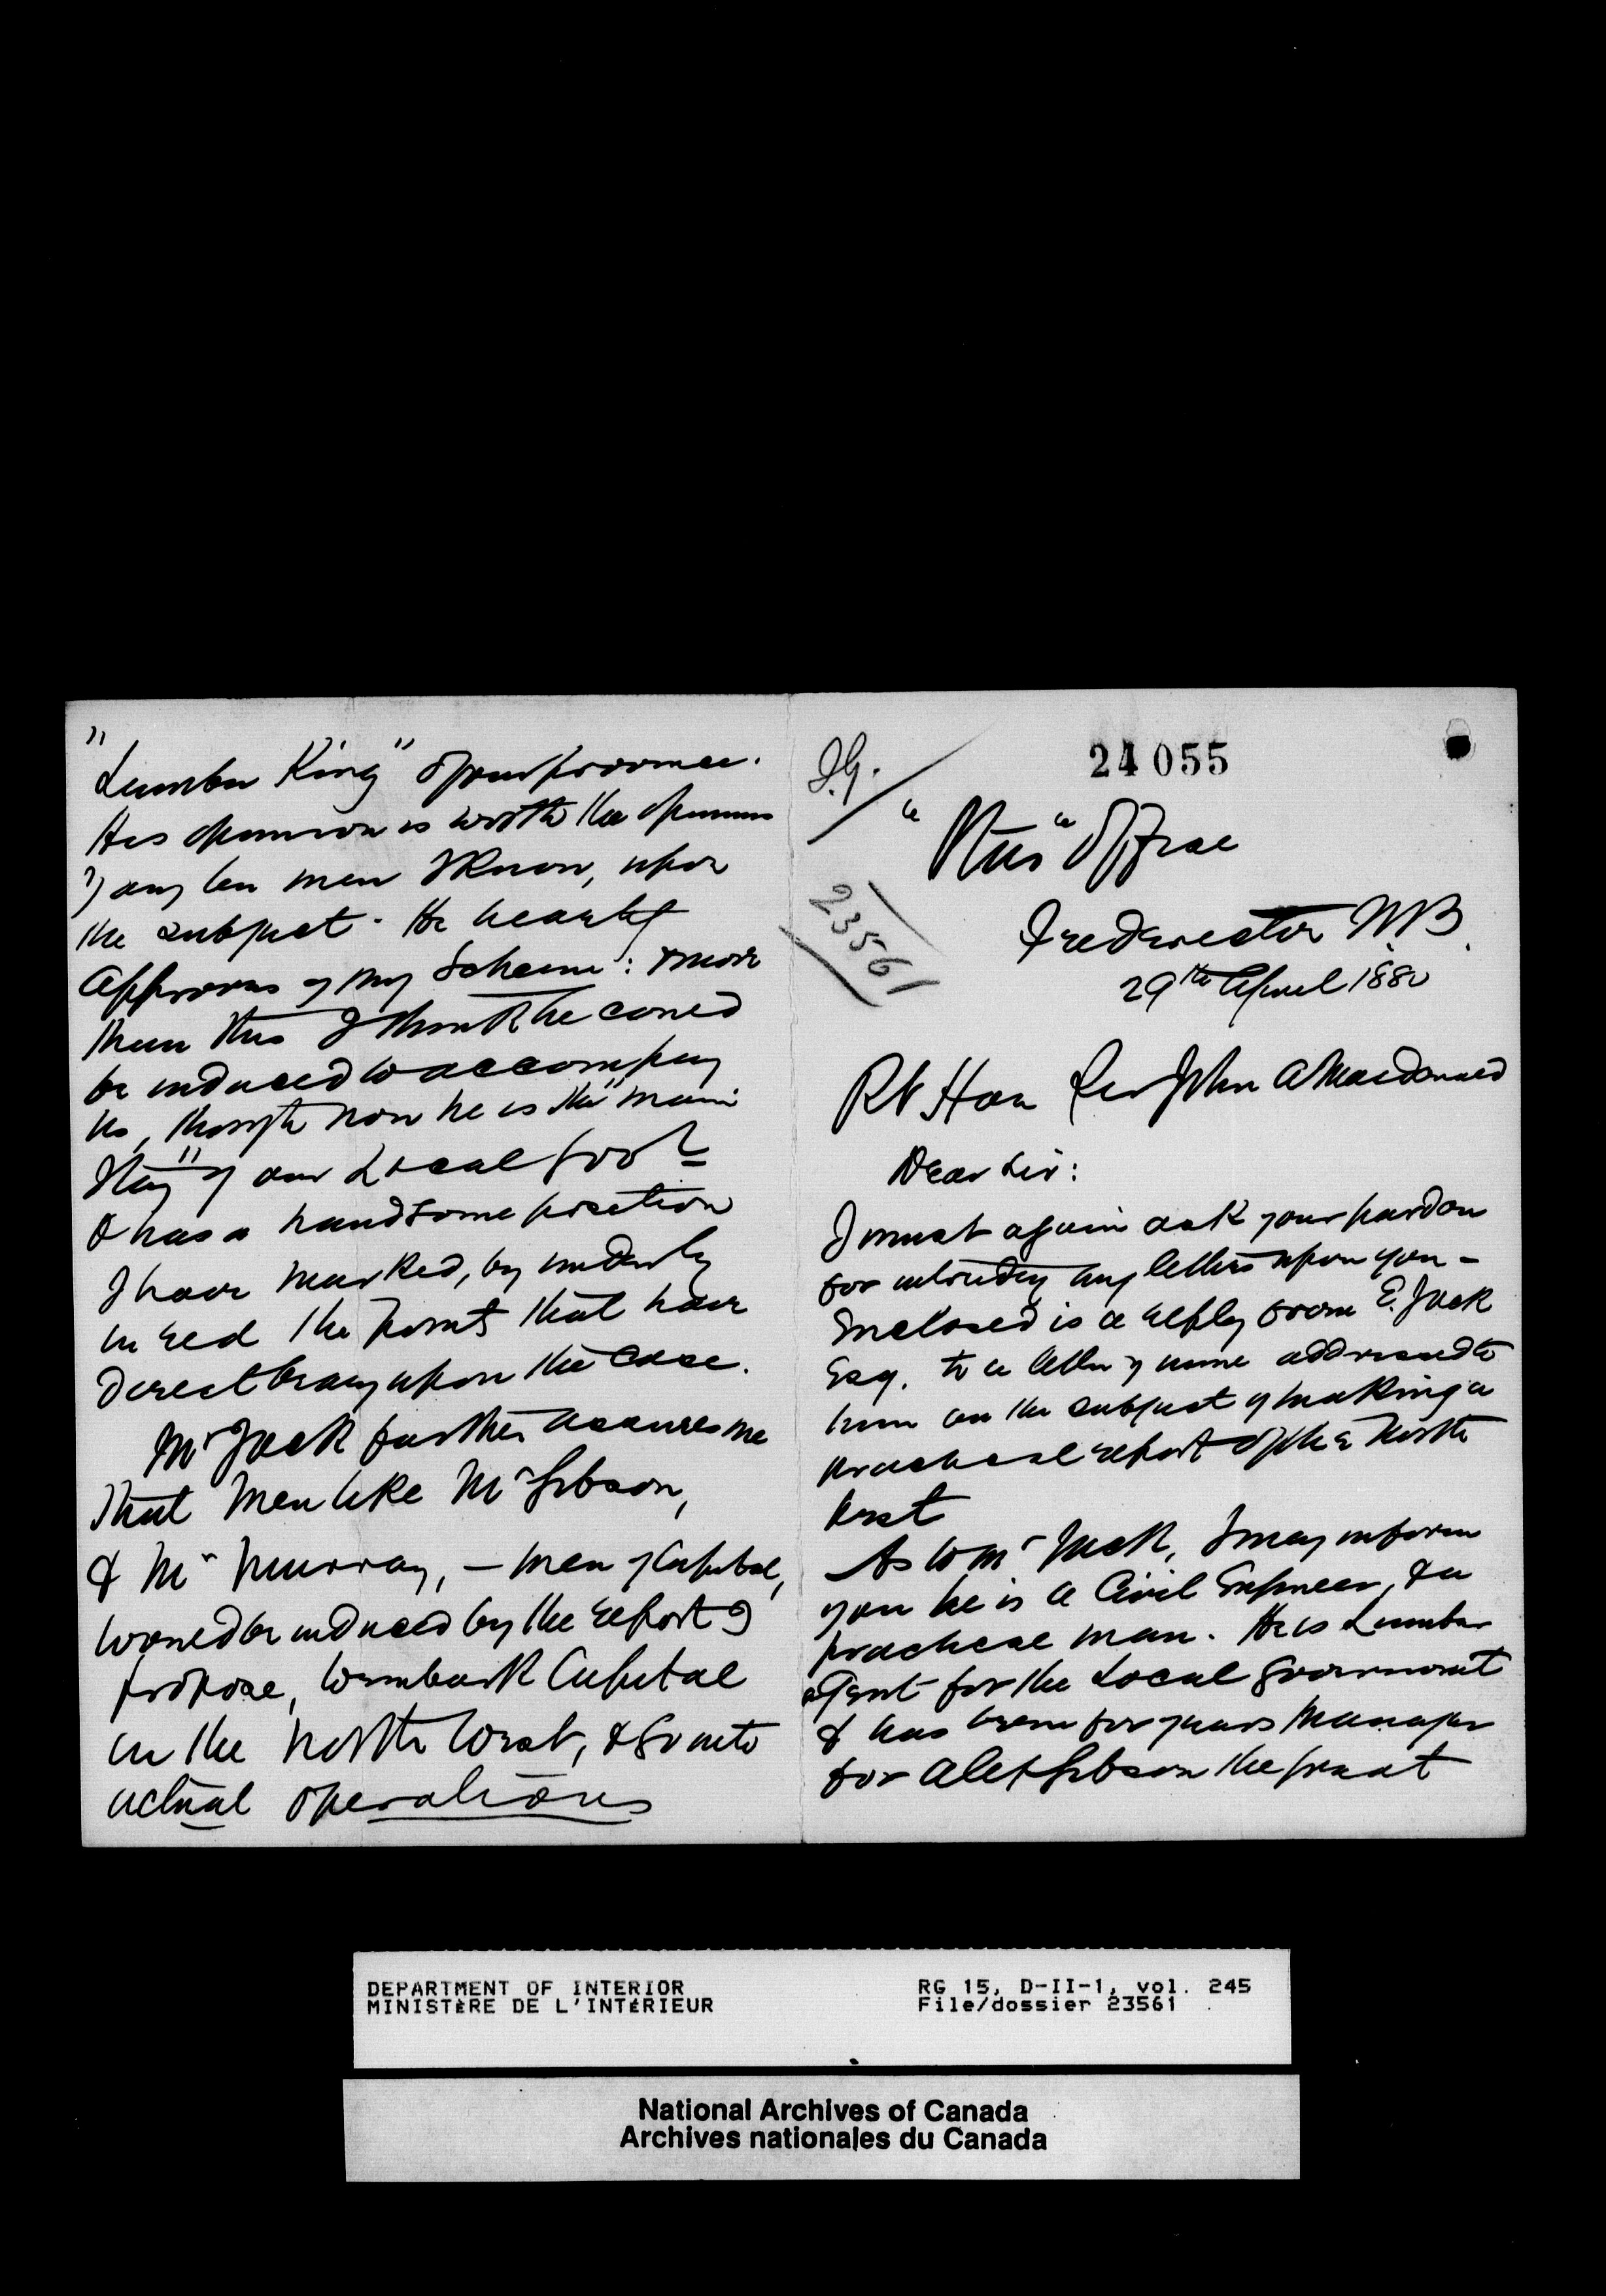 J.G.
24055
"Star" Office
23561
Fredericton N.B.
29th April 1880
Rt Hon Sir John A Macdonald
Dear Sir:
I must again ask your pardon
for intruding my letters upon you -
Enclosed is a reply from E. Jack
Esq. to a letter of mine addressed to
him on the subject of making a
practical report of the North
West
As to Mr Jack, I may inform
you he is a Civil Engineer, & a
practical man. He is Lumber
agent for the Local Government
& has been for years Manager
for Alex Gibson the great
"Lumber King" of our province.
His opinion is worth the opinions
of any ten men I know, upon
the subject. He heartily
approves of my Scheme: & more
than this I think he could
be induced to accompany
us, though now he is the "main
stay" of our Local Govt
& has a handsome position
I have marked, by underlg
in red the points that have
direct bearg upon the case.
Mr Jack further assures me
that men like Mr Gibson,
& Mr Murray, - men of Capital,
would be induced by the report I
propose, to embark Capital
in the North West, & go into
actual operations
DEPARTMENT OF INTERIOR
MINISTÈRE DE L'INTÉRIEUR
RG 15, D-II-1, vol. 245
File/dossier 23561
National Archives of Canada
Archives nationales du Canada